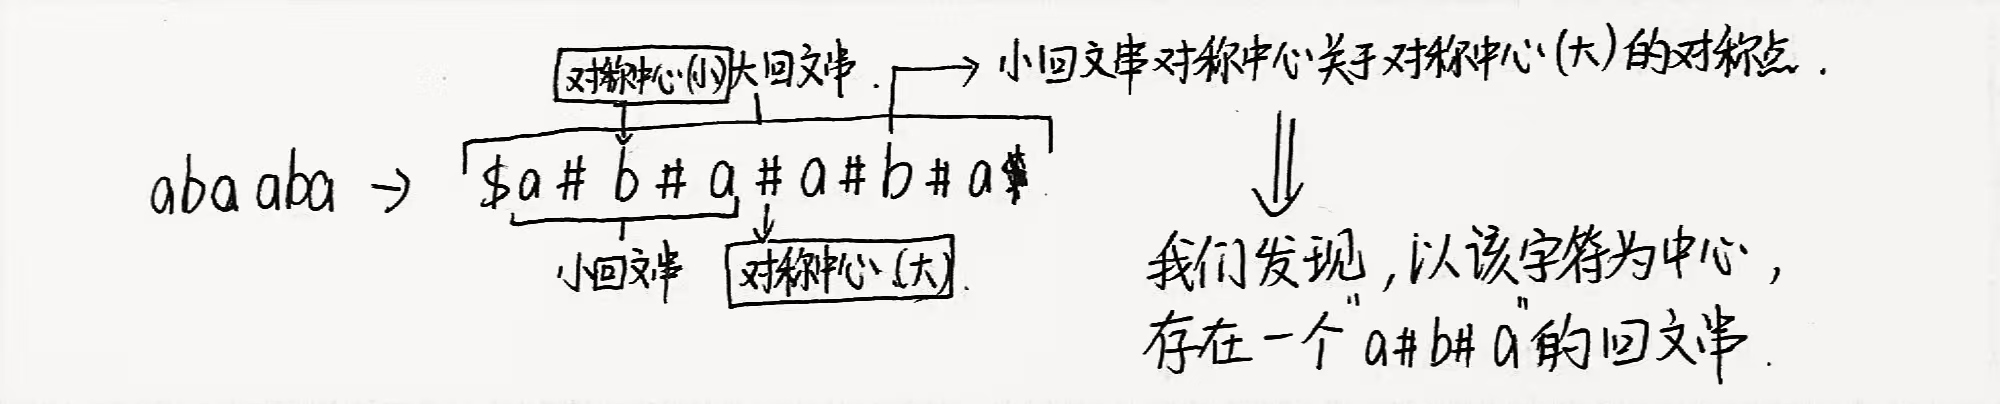 对称中心(小) 大回文串. → 小回文串对称中心关于对称中心(大)的对称点.
abaaba → $a#b#a#a#b#a$
小回文串 对称中心(大).
我们发现,以该字符为中心,
存在一个"a#b#a"的回文串.